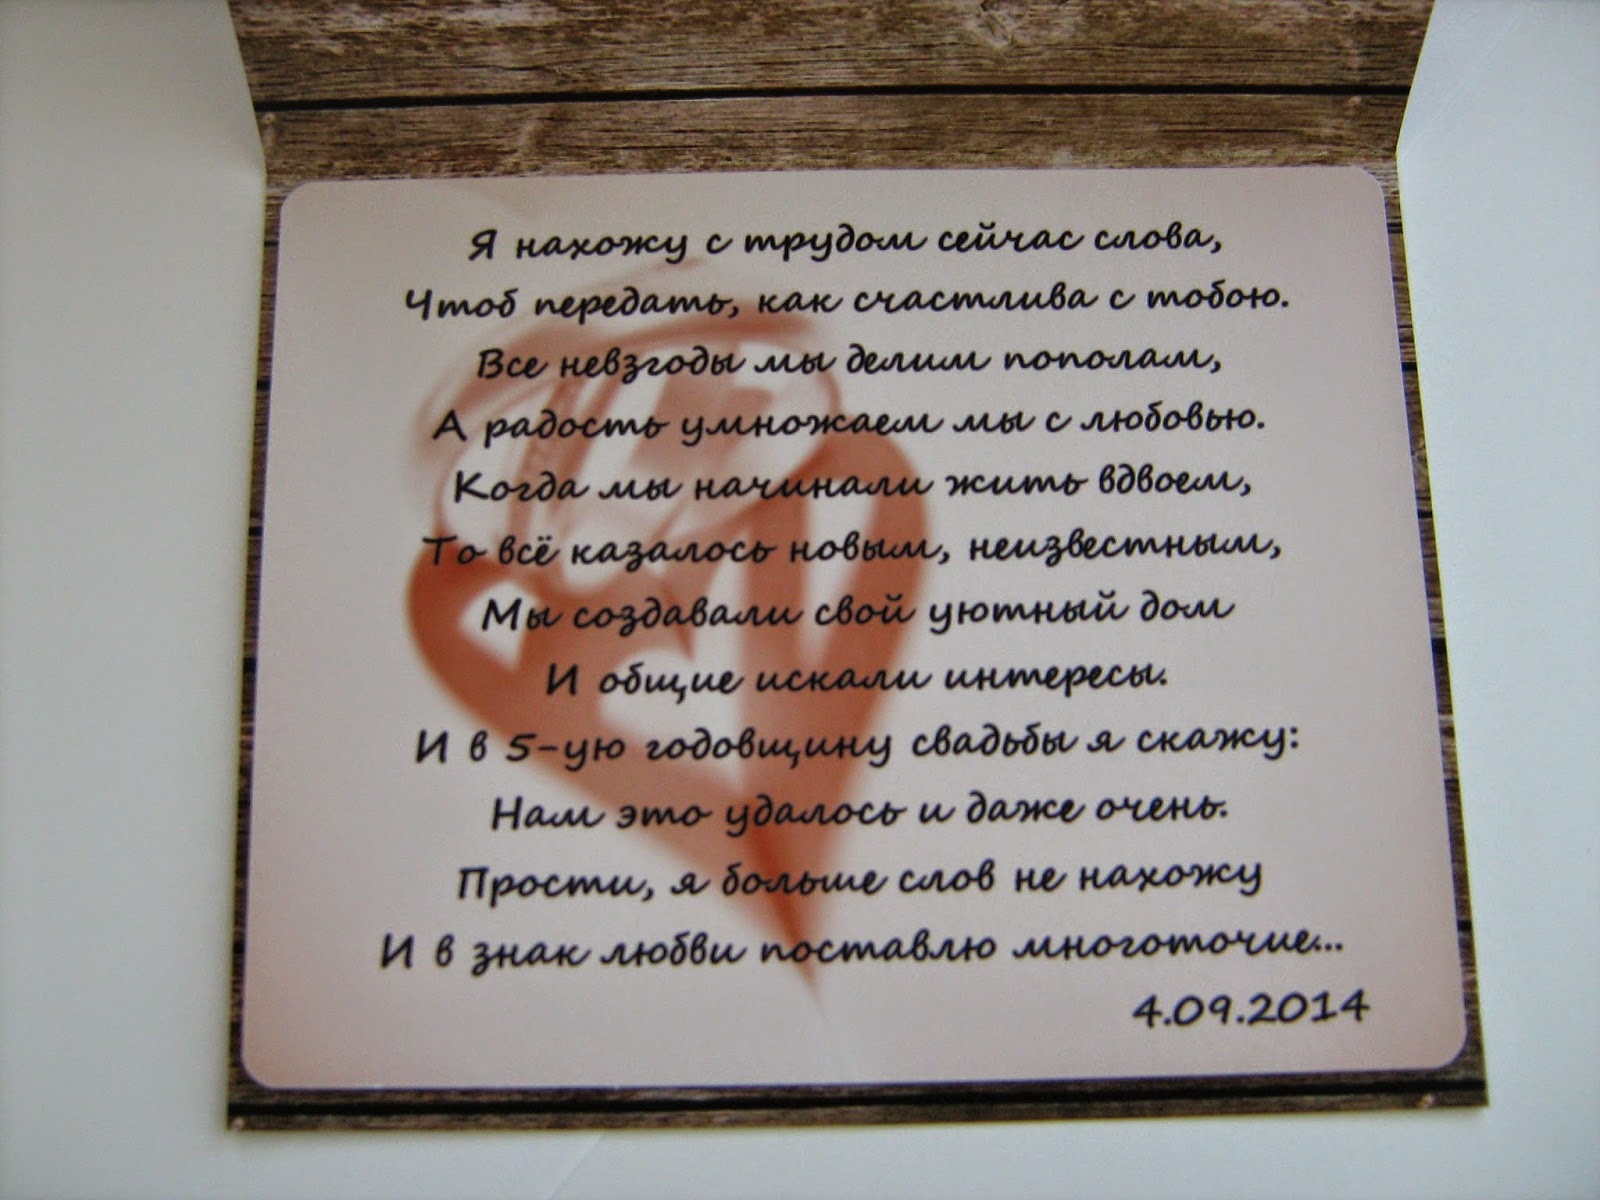 Я нахожу с трудом сейчас слова,
Чтоб передать, как счастлива с тобою.
Все невзгоды мы делим пополам,
А радость умножаем мы с любовью.
Когда мы начинали жить вдвоем,
То всё казалось новым, неизвестным,
Мы создавали свой уютный дом
И общие искали интересы.
И в 5-ую годовщину свадьбы я скажу:
Нам это удалось и даже очень.
Прости, я больше слов не нахожу
И в знак любви поставлю многоточие...
4.09.2014